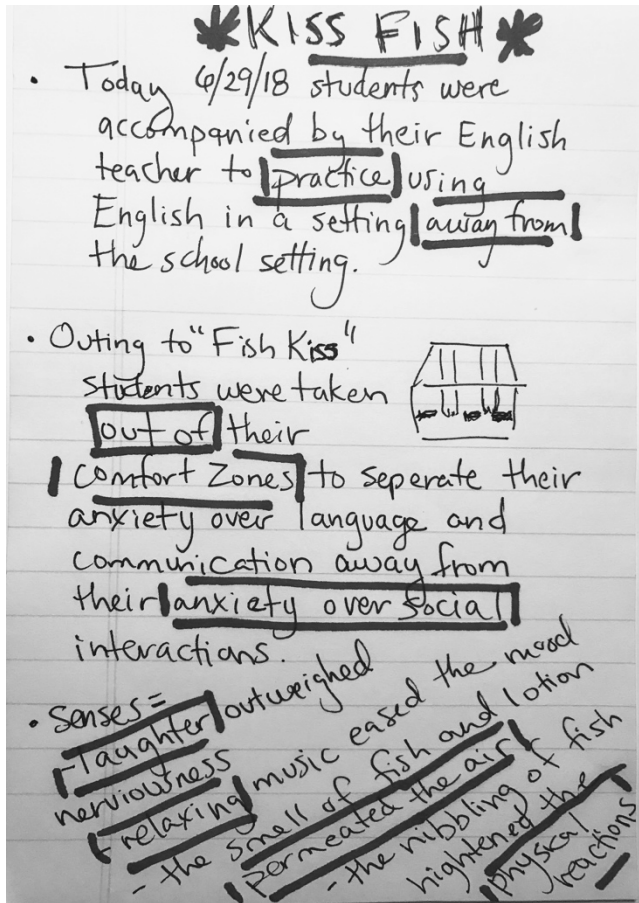 KISS FISH
• Today 6/29/18 students were
accompanied by their English
teacher to practice using
English in a setting away from
the school setting.
• Outing to "Fish Kiss"
students were taken
out of their
comfort zones to seperate their
anxiety over language and
communication away from
their anxiety over social
interactions.
• Senses =
- laughter outweighed
nerviousness
- relaxing music eased the mood
- the smell of fish and lotion
permeated the air
- the nibbling of fish
hightened the
physical
reactions